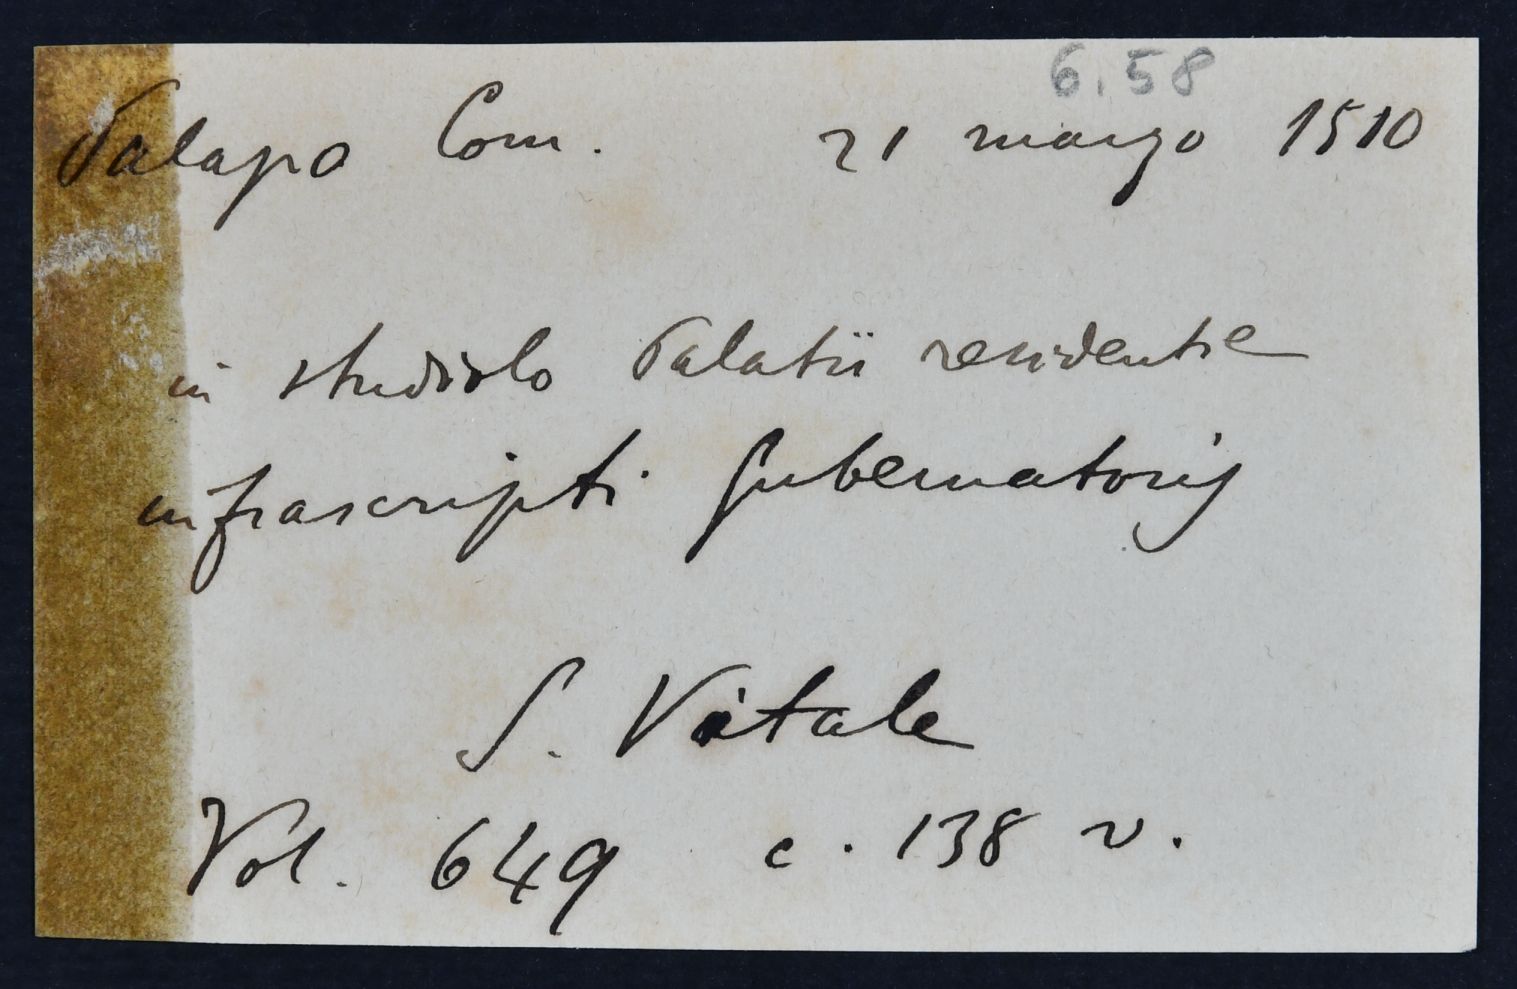 6.58
Palazzo Com. 21 marzo 1510
in studiolo Palatii residentie
infrascripti Gubernatorij
S. Vitale
Vol. 649 c. 138 v.